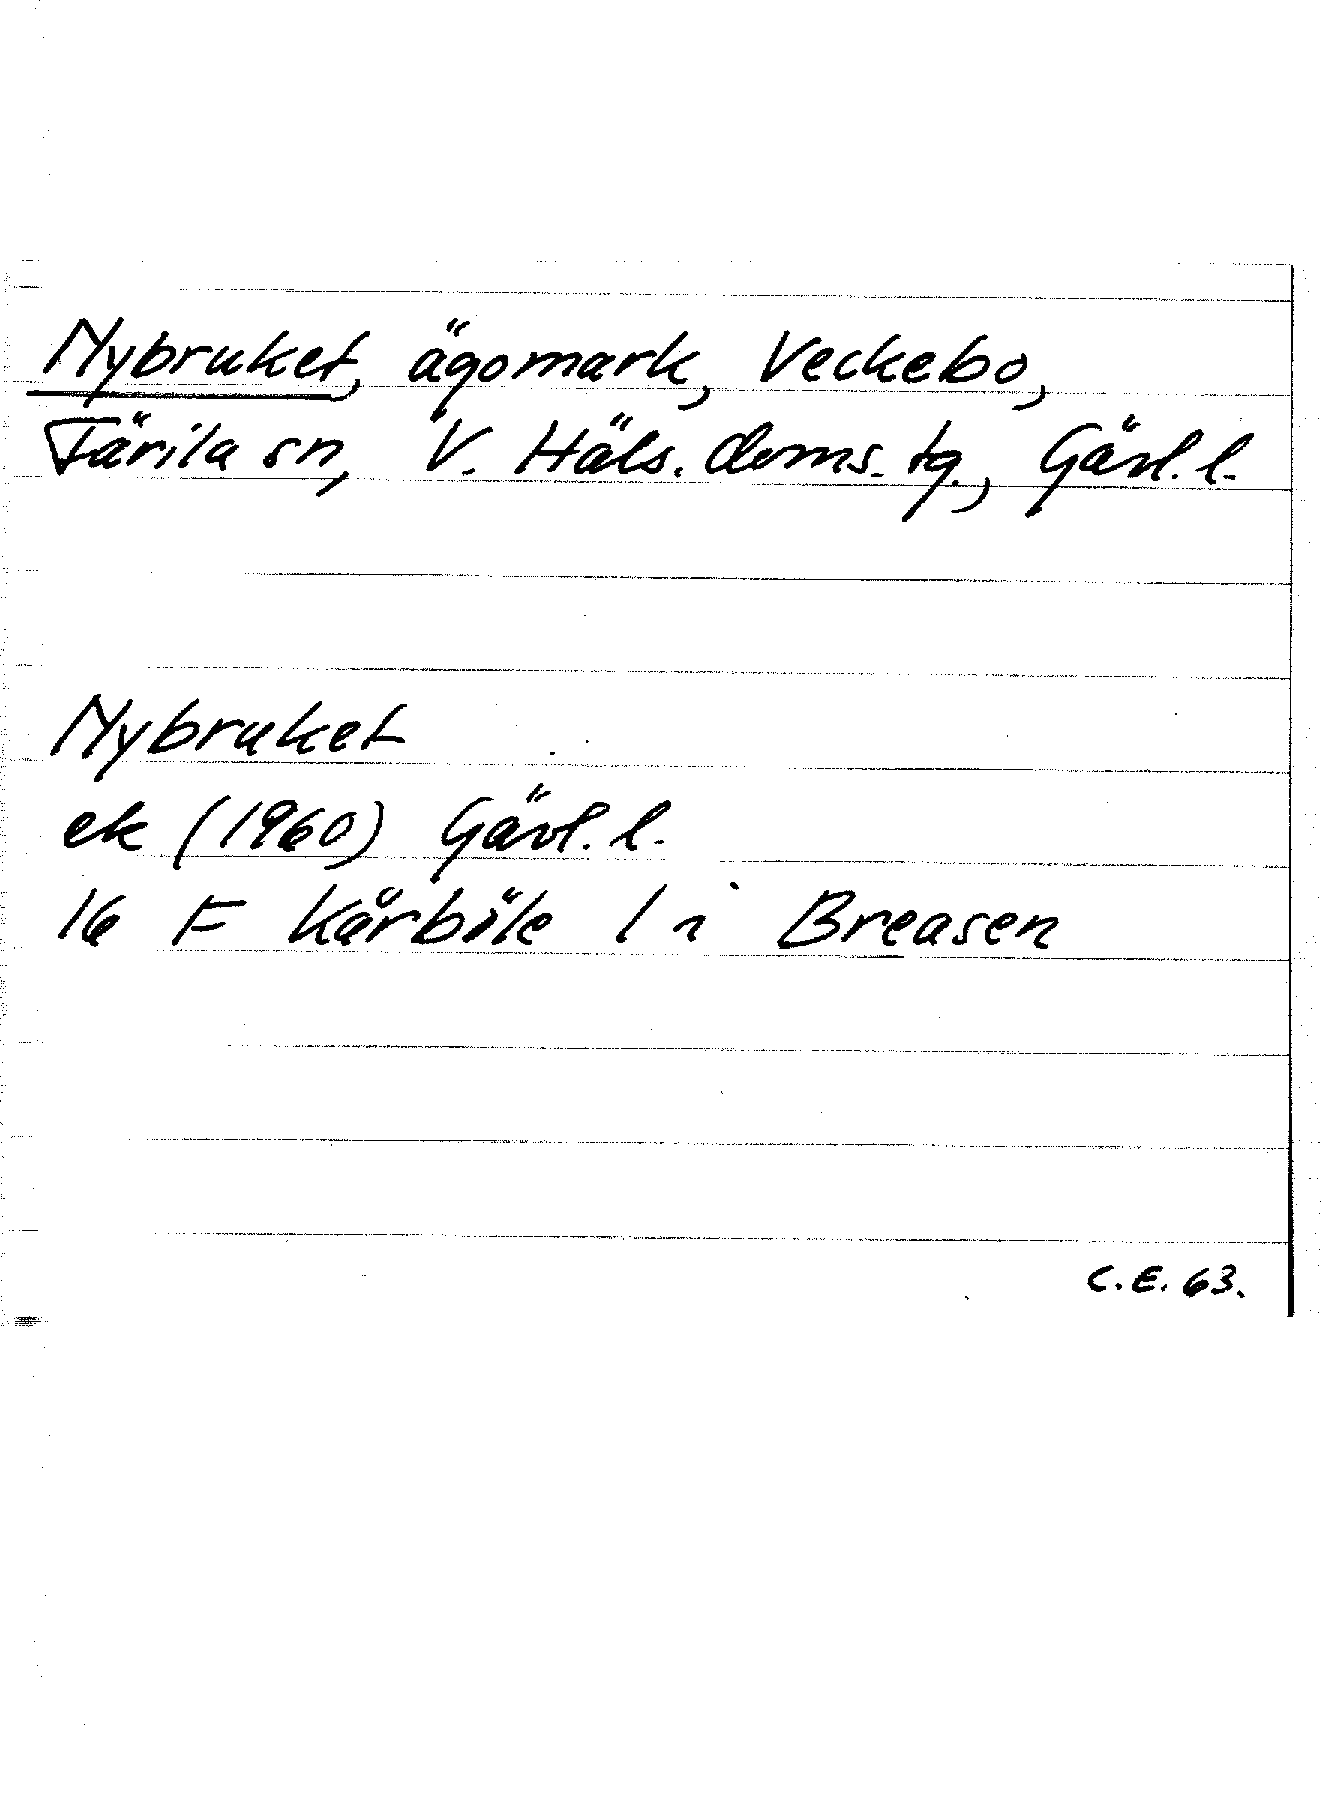 Nybruket, ägomark, Veckebo,
Färila sn, V. Häls. doms. tg., Gävl. l.
Nybruket
ek (1960) Gävl. l.
16 F Kårböle 1 i Breasen
C.E. 63.